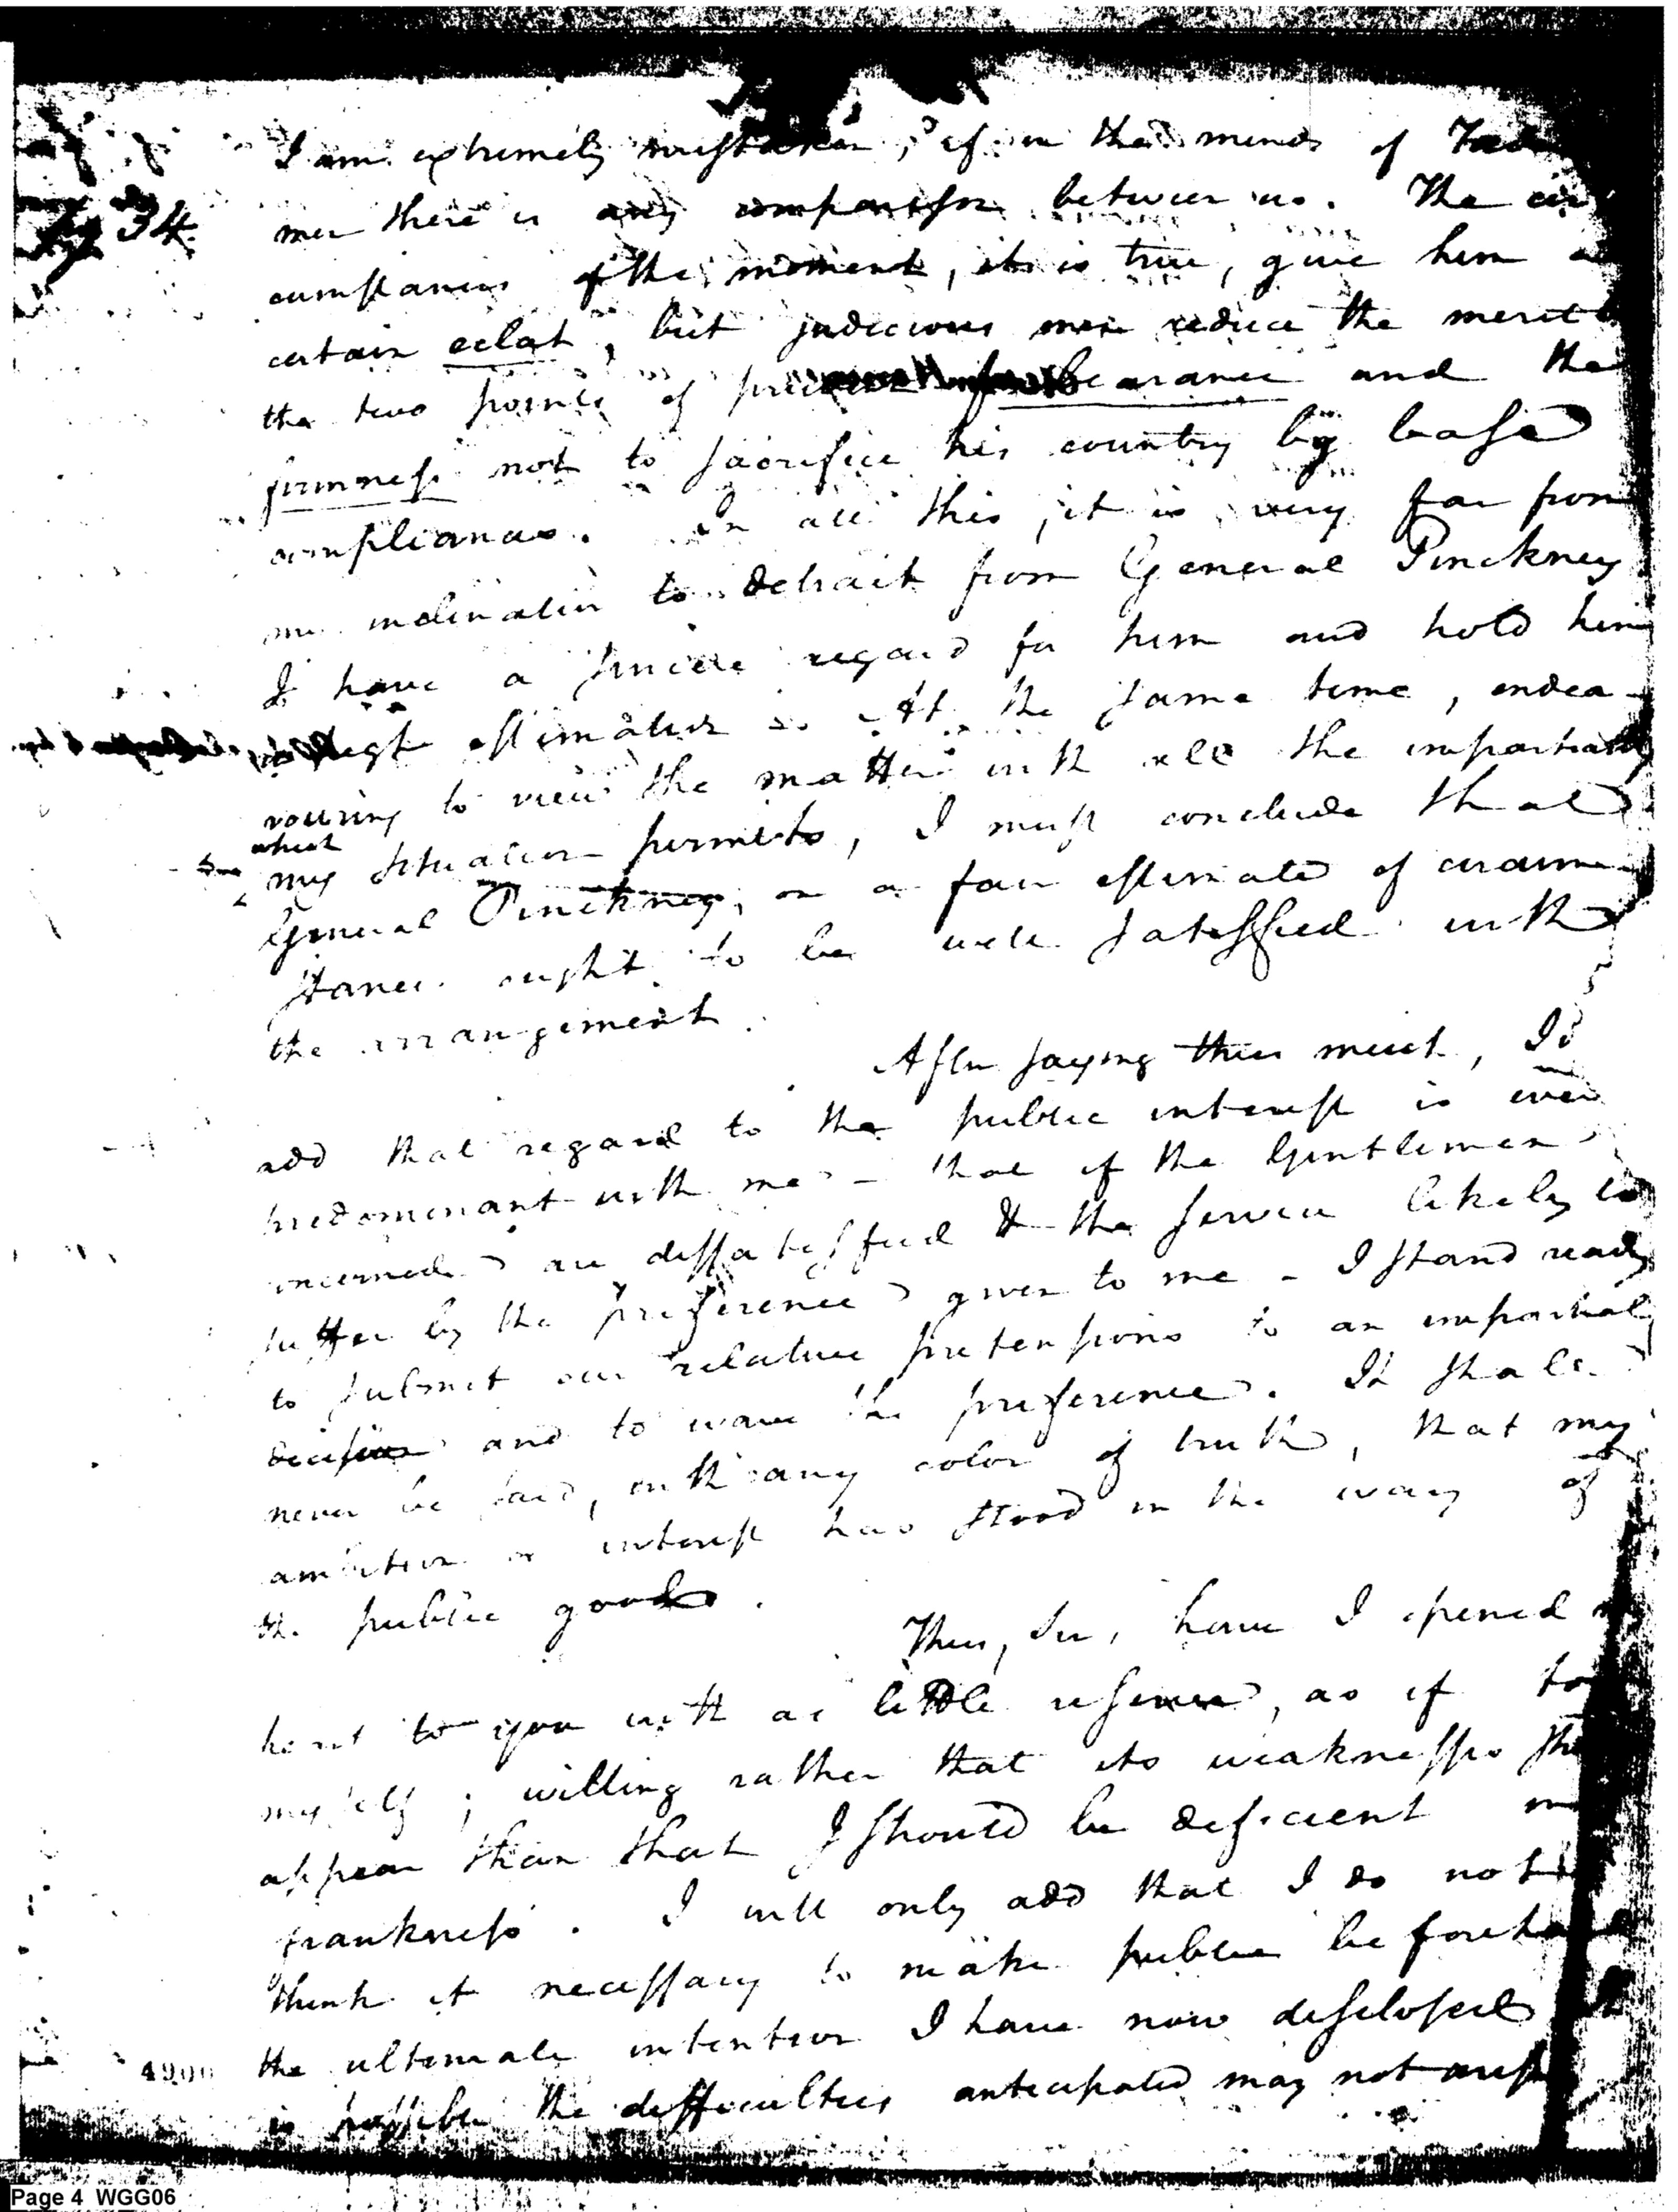 I am extremely mistaken, if in the minds of
pg 34
men there is any comparison between us. The cir
cumstances of the moment, it is true, give him a
certain eclat, but judicious men reduce the merit
the two points of forbearance and the
firmness not to sacrifice his country by base
compliances. In all this, it is very far from
my inclination to detract from General Pinckney
I have a sincere regard for him and hold him
in high estimation. At the same time, endea-
vouring to view the matter with all the impartiality
which
my situation permits, I must conclude that
General Pinckney, on a fair estimate of circum-
stances ought to be well satisfied with
the arrangement.
After saying thus much, I
add that regard to the public interest is ever
predominant with me - that if the Gentlemen
concerned are dissatisfied & the service likely to
suffer by the preference given to me - I stand ready
to submit our relative pretensions to an impartial
decision and to wave the preference. It shall
never be said, with any color of truth, that my
ambition or interest has stood in the way of
the public good.
Thus, Sir, have I opened my
heart to you with as little reserve, as if to
myself; willing rather that its weaknesses sh
appear than that I should be deficient in
frankness. I will only add that I do not
think it necessary to make public beforeha
the ultimate intention I have now disclosed
is possible the difficulties anticipated may not arise
4900
Page 4 WGG06